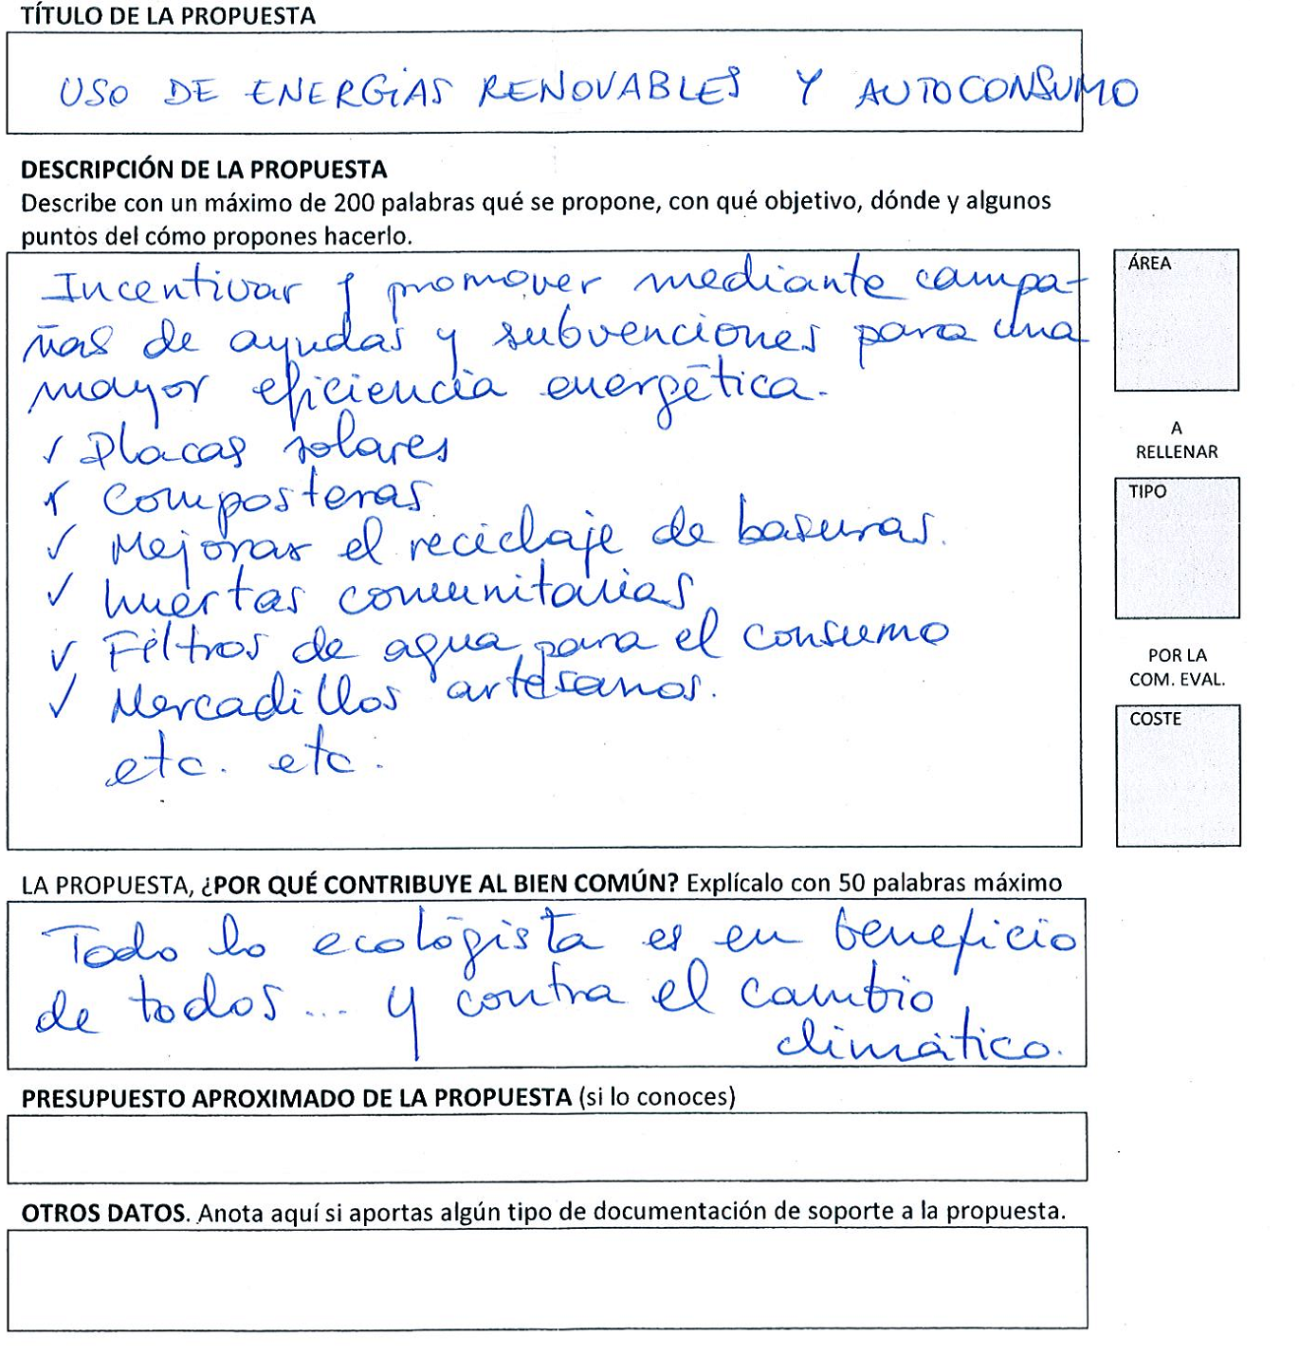 TÍTULO DE LA PROPUESTA
USO DE ENERGÍAS RENOVABLES Y AUTOCONSUMO
DESCRIPCIÓN DE LA PROPUESTA
Describe con un máximo de 200 palabras qué se propone, con qué objetivo, dónde y algunos
puntos del cómo propones hacerlo.
Incentivar y promover mediante campa-
ñas de ayudas y subvenciones para una
mayor eficiencia energética.
✓ Placas solares
✓ Composteras
✓ Mejorar el reciclaje de basuras.
✓ huertas comunitarias
✓ Filtros de agua para el consumo
✓ Mercadillos artesanos.
etc. etc.
ÁREA
A
RELLENAR
TIPO
POR LA
COM. EVAL.
COSTE
LA PROPUESTA, ¿POR QUÉ CONTRIBUYE AL BIEN COMÚN? Explícalo con 50 palabras máximo
Todo lo ecológista es en beneficio
de todos... y contra el cambio
climático.
PRESUPUESTO APROXIMADO DE LA PROPUESTA (si lo conoces)
OTROS DATOS. Anota aquí si aportas algún tipo de documentación de soporte a la propuesta.